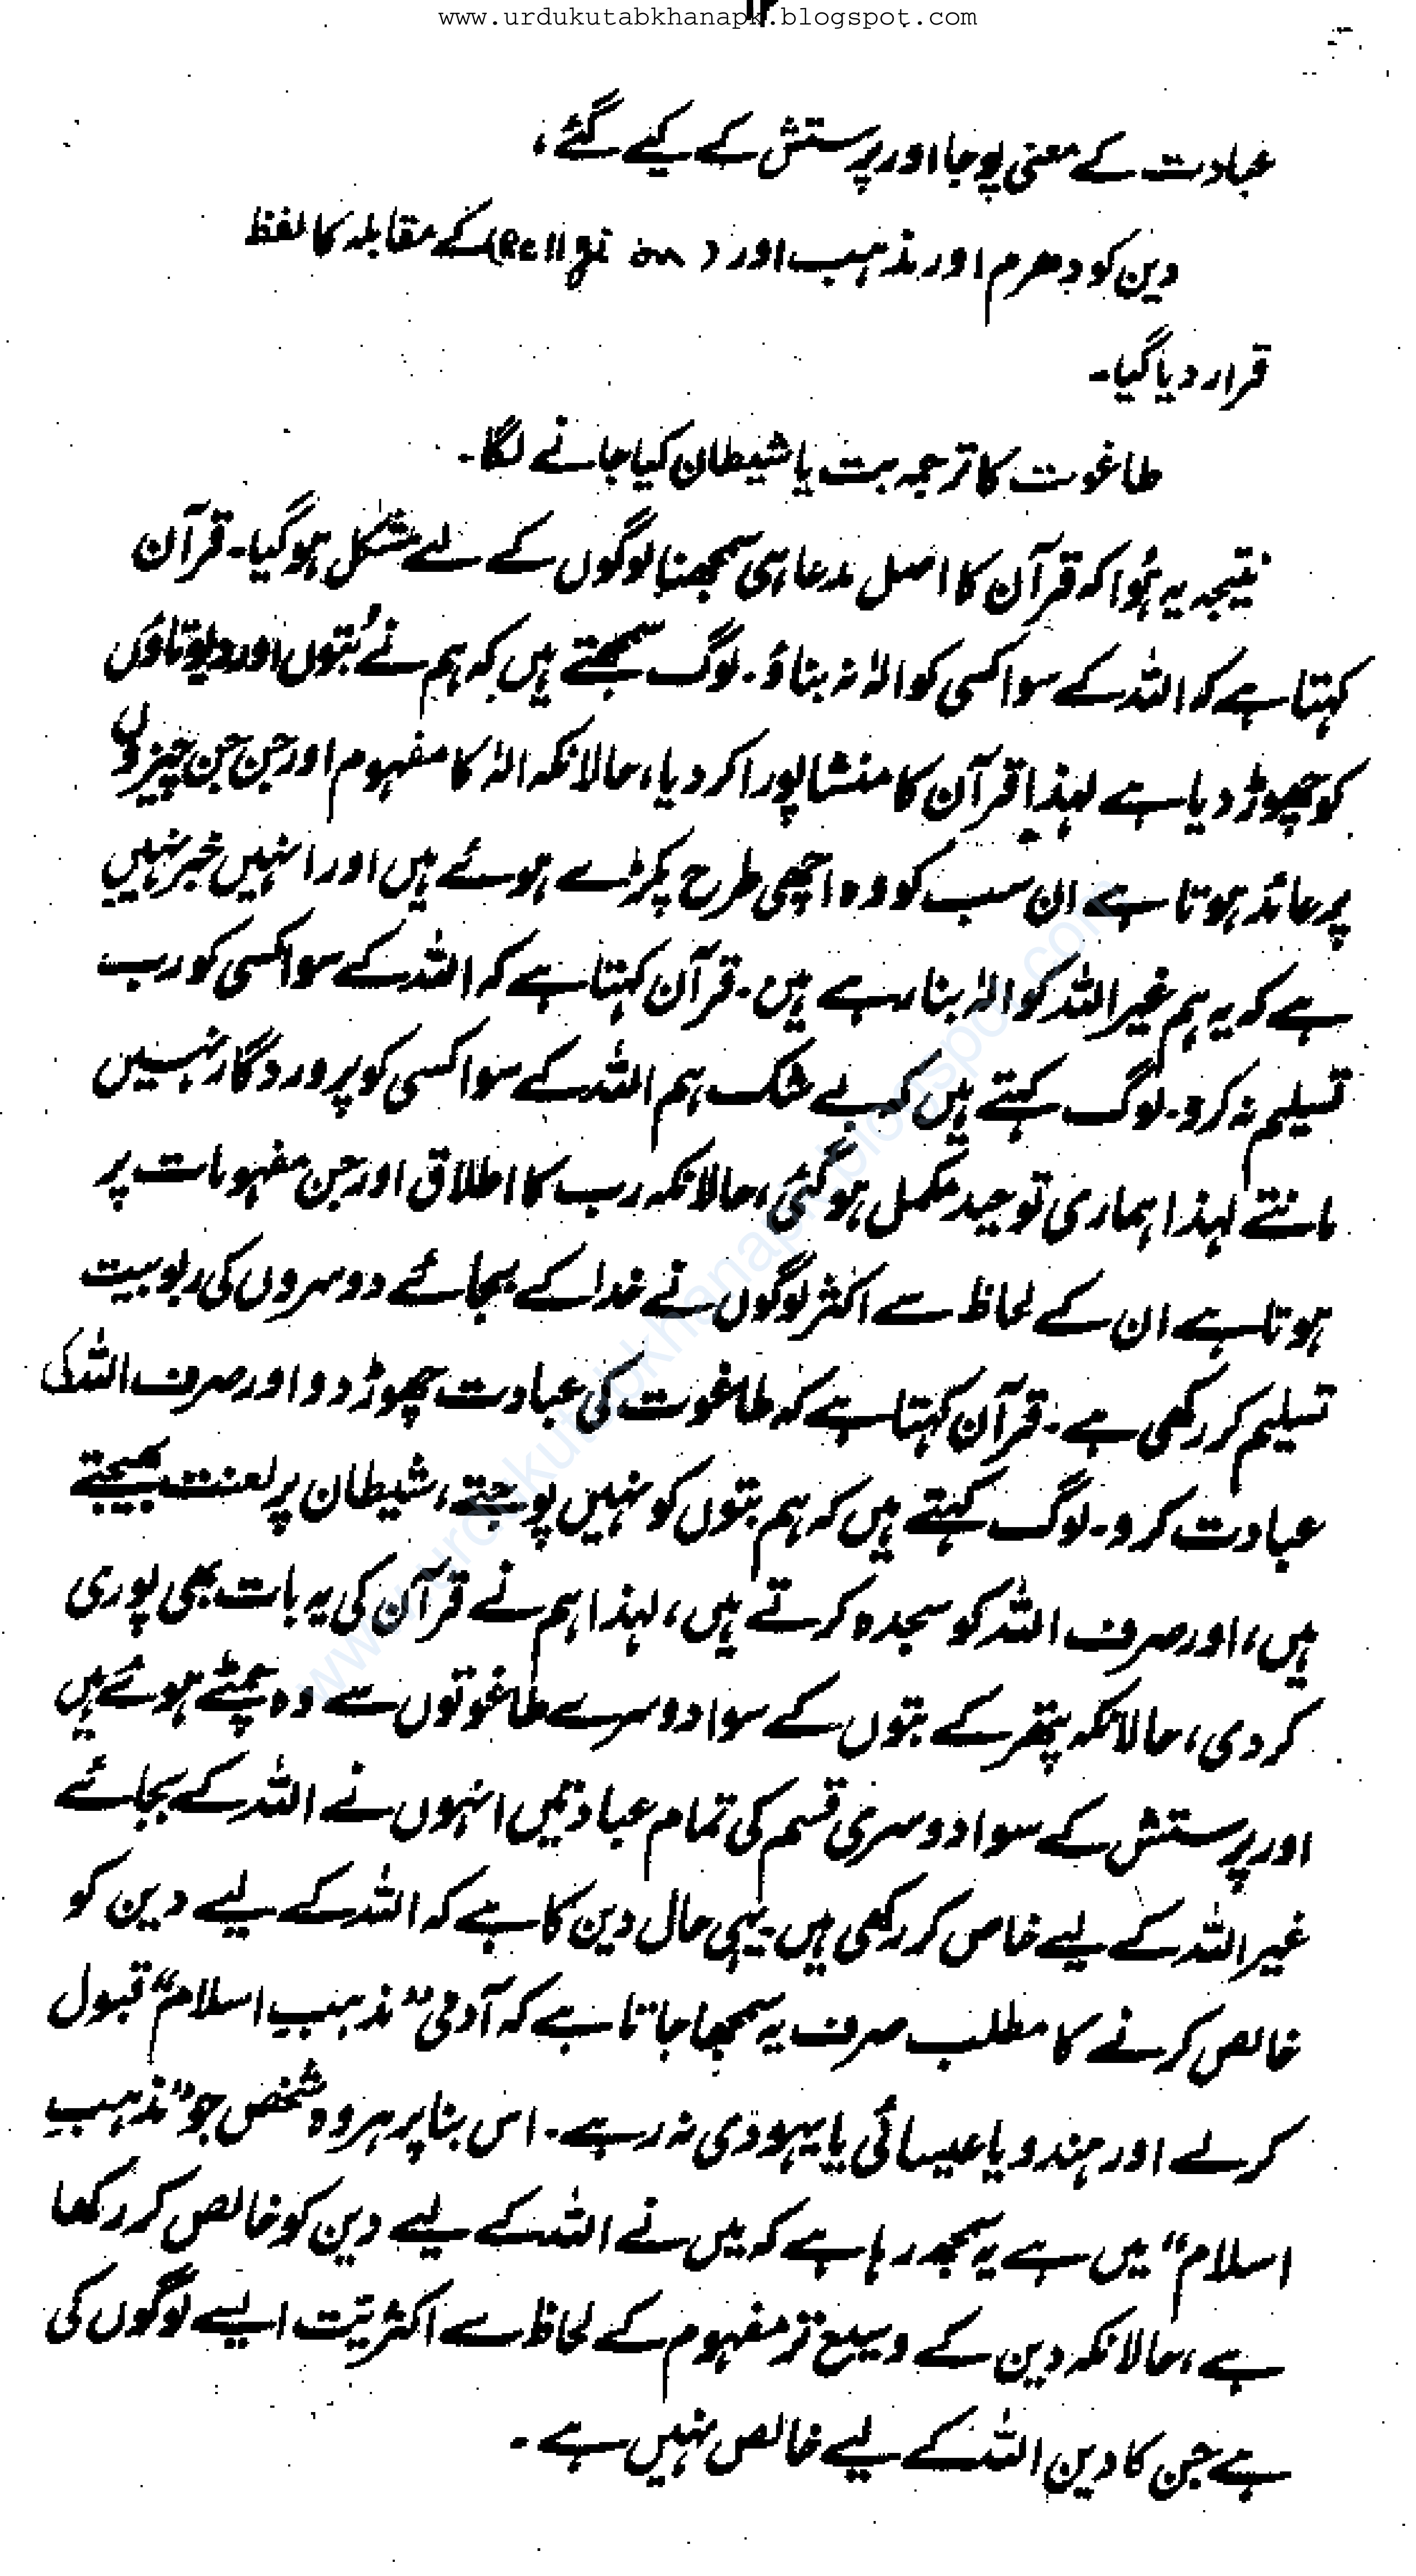 www.urdukutabkhanapk.blogspot.com
۱۲
عبادت کے معنی پوجا اور پرستش کے کیے گئے،
دین کو دھرم اور مذہب اور (Religion) کے مقابلہ کا لفظ
قرار دیا گیا۔
طاغوت کا ترجمہ بت یا شیطان کیا جانے لگا۔
نتیجہ یہ ہُوا کہ قرآن کا اصل مدعا ہی سمجھنا لوگوں کے لیے مشکل ہو گیا۔ قرآن
کہتا ہے کہ اللہ کے سوا کسی کو الٰہ نہ بناؤ۔ لوگ سمجھتے ہیں کہ ہم نے بُتوں اور دیوتاؤں
کو چھوڑ دیا ہے لہٰذا قرآن کا منشا پورا کر دیا، حالانکہ الٰہ کا مفہوم اور جن جن چیزوں
پر عائد ہوتا ہے ان سب کو وہ اچھی طرح پکڑے ہوئے ہیں اور انہیں خبر نہیں
ہے کہ یہ ہم غیر اللہ کو الٰہ بنا رہے ہیں۔ قرآن کہتا ہے کہ اللہ کے سوا کسی کو رب
تسلیم نہ کرو۔ لوگ کہتے ہیں کہ بے شک ہم اللہ کے سوا کسی کو پروردگار نہیں
مانتے لہذا ہماری توحید مکمل ہو گئی، حالانکہ رب کا اطلاق اور جن مفہومات پر
ہوتا ہے ان کے لحاظ سے اکثر لوگوں نے خدا کے بجائے دوسروں کی ربوبیت
تسلیم کر رکھی ہے۔ قرآن کہتا ہے کہ طاغوت کی عبادت چھوڑ دو اور صرف اللہ کی
عبادت کرو۔ لوگ کہتے ہیں کہ ہم بتوں کو نہیں پوجتے، شیطان پر لعنت بھیجتے
ہیں، اور صرف اللہ کو سجدہ کرتے ہیں، لہذا ہم نے قرآن کی یہ بات بھی پوری
کر دی، حالانکہ پتھر کے بتوں کے سوا دوسرے طاغوتوں سے وہ چمٹے ہوئے ہیں
اور پرستش کے سوا دوسری قسم کی تمام عبادتیں انہوں نے اللہ کے بجائے
غیر اللہ کے لیے خاص کر رکھی ہیں۔ یہی حال دین کا ہے کہ اللہ کے لیے دین کو
خالص کرنے کا مطلب صرف یہ سمجھا جاتا ہے کہ آدمی ”مذہبِ اسلام“ قبول
کر لے اور ہندو یا عیسائی یا یہودی نہ رہے۔ اس بنا پر ہر وہ شخص جو ”مذہبِ
اسلام“ میں ہے یہ سمجھ رہا ہے کہ میں نے اللہ کے لیے دین کو خالص کر رکھا
ہے، حالانکہ دین کے وسیع تر مفہوم کے لحاظ سے اکثریّت ایسے لوگوں کی
ہے جن کا دین اللہ کے لیے خالص نہیں ہے۔
www.urdukutabkhanapk.blogspot.com